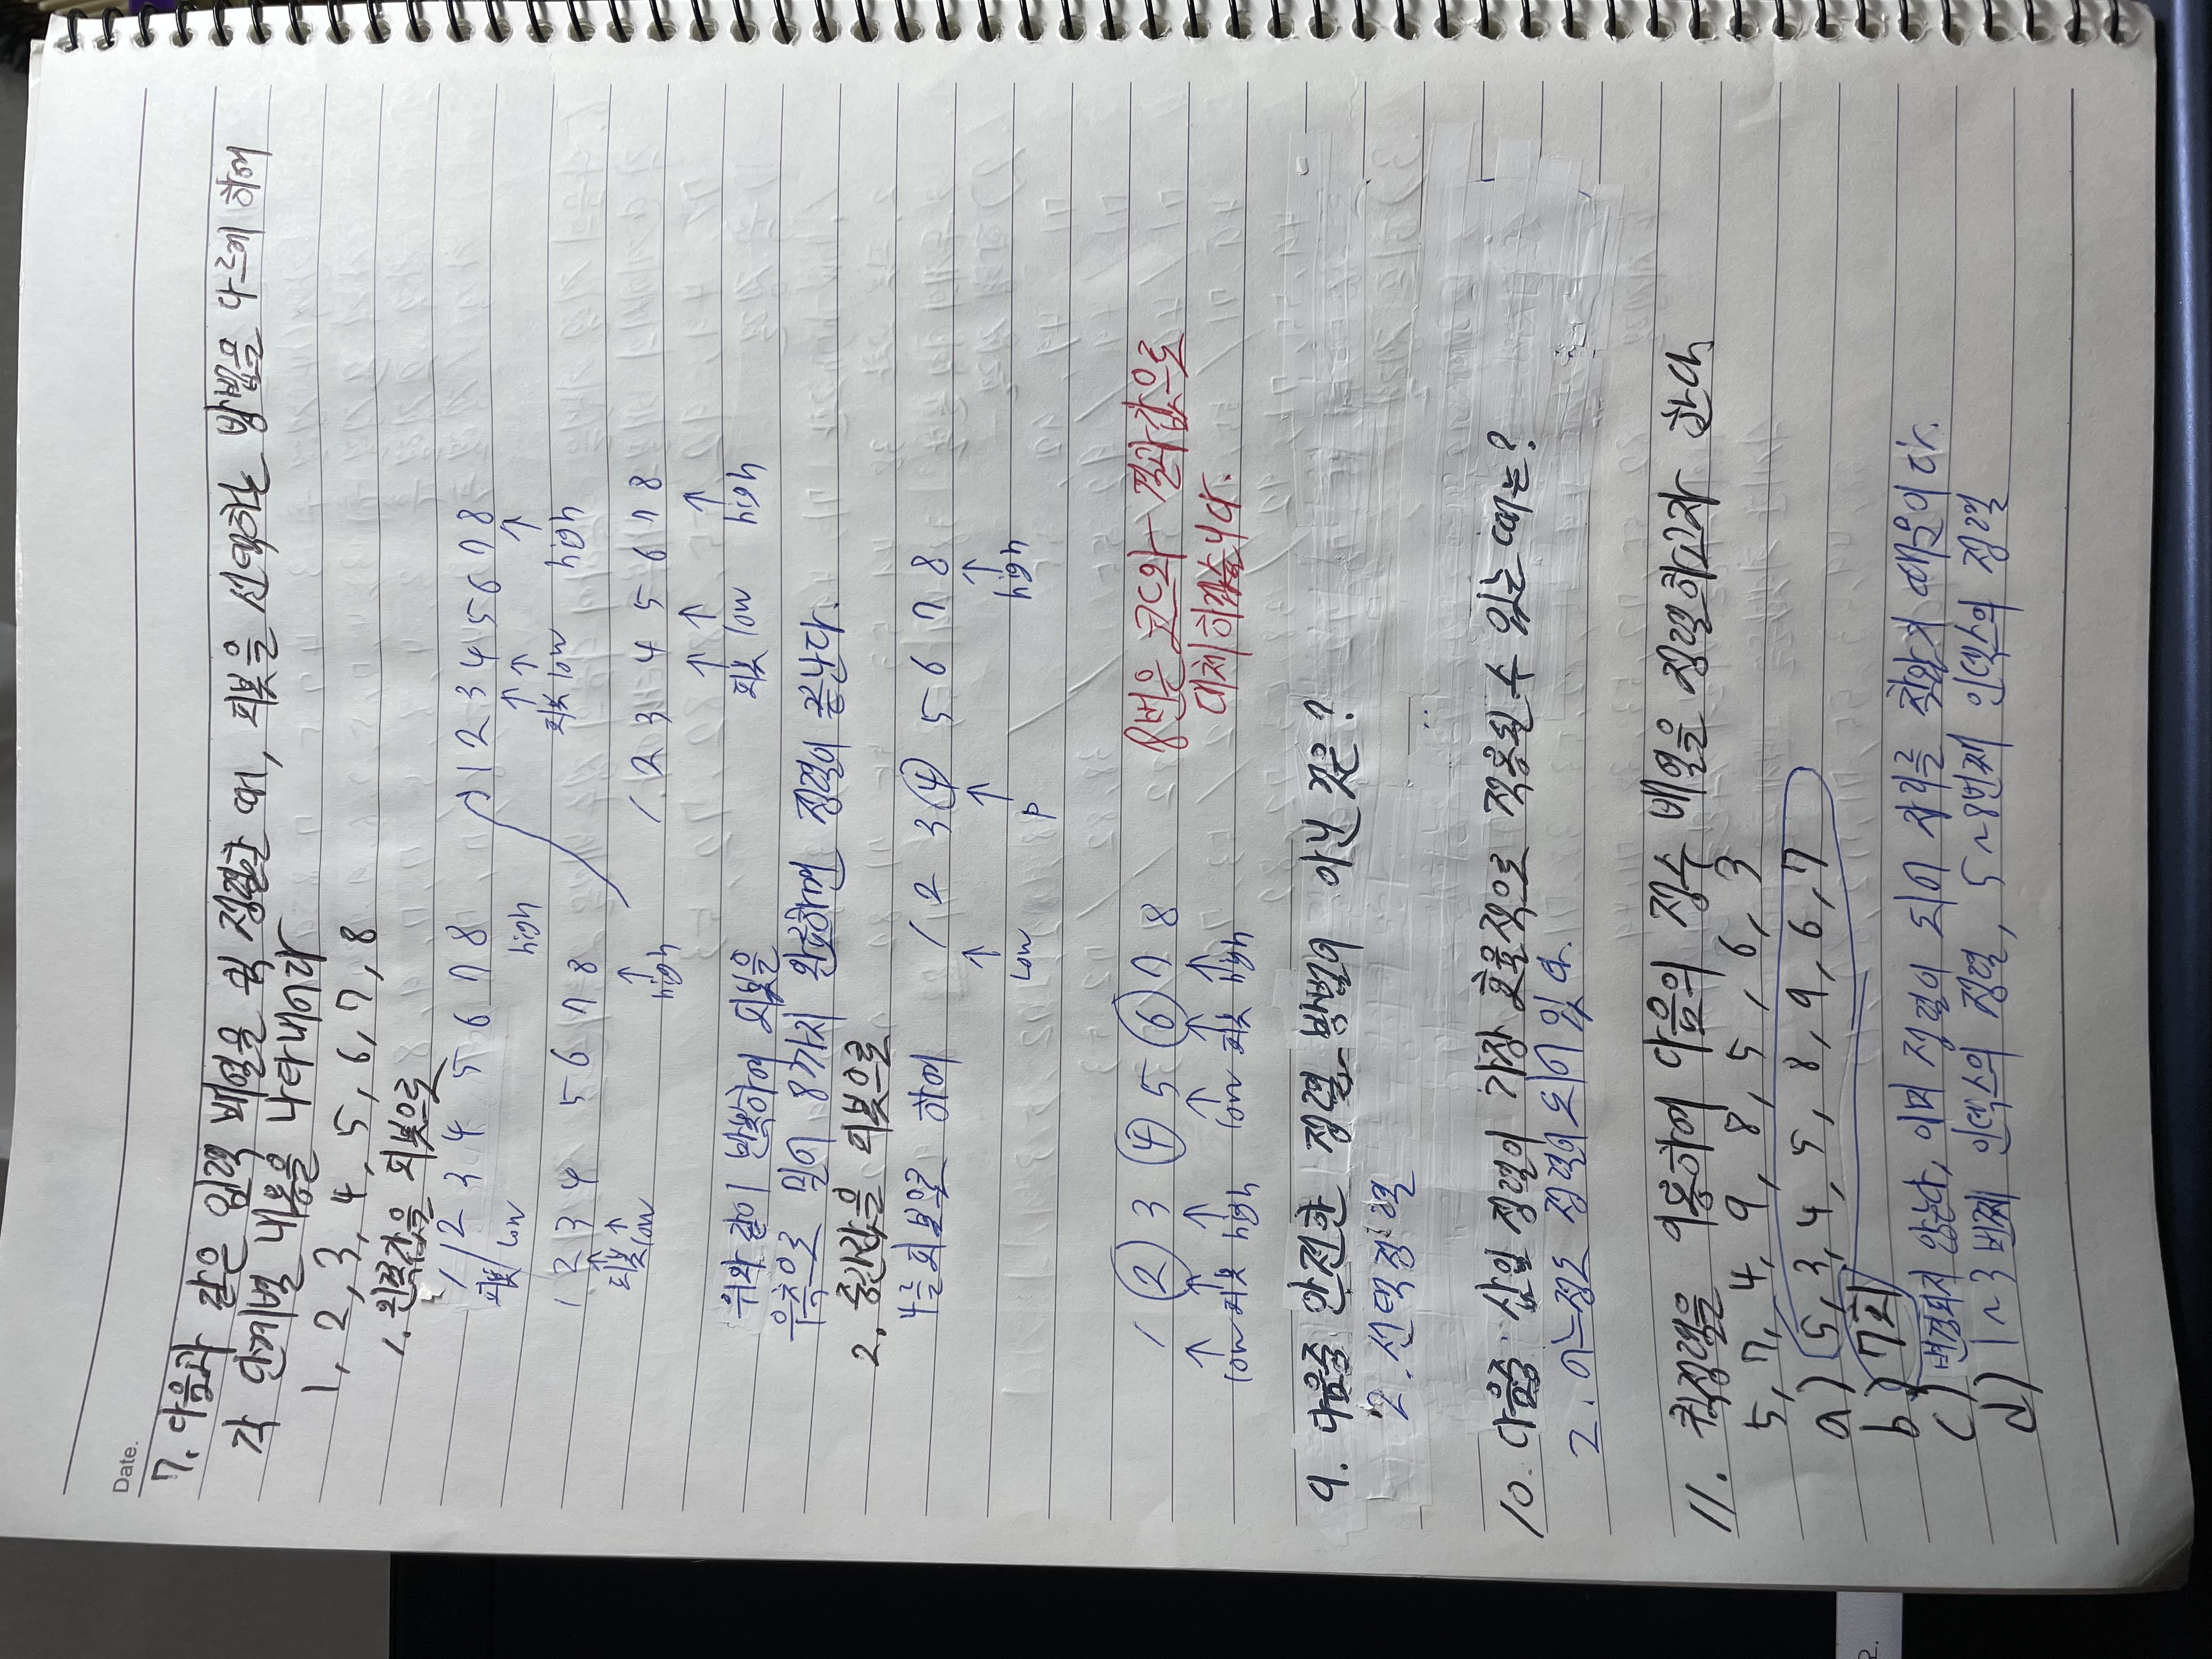 Date.
7. 다음과 같은 입력 배열을 퀵 정렬할 때, 피봇을 선택하는 방법을 다르게 하여
각 단계별 내용을 나타내어라
1, 2, 3, 4, 5, 6, 7, 8
1. 왼쪽값을 피봇으로
1 2 3 4 5 6 7 8
피봇 low high
1 2 3 4 5 6 7 8
피봇 low high
1 2 3 4 5 6 7 8
피봇 low high
1 2 3 4 5 6 7 8
피봇 low high
위와 같이 반복하여 피봇을
우측으로 밀어 8까지 완료하면 정렬이 끝난다.
2. 중간값을 피봇으로
4를 피봇으로 하여 1 2 3 4 5 6 7 8
low P high
1 2 3 4 5 6 7 8
low 피봇 high low 피봇 high
8번은 코드와 결과값으로
대체하겠습니다.
9. 다음중 안전한 정렬 방법이 아닌 것은?
2. 선택정렬
10. 다음중 삽입 정렬이 가장 효율적으로 적용될 수 있는 때는?
2. 어느정도 정렬이 되어 있다.
11. 퀵정렬을 이용하여 다음의 정수 배열을 정렬하고자 한다
5, 7, 4, 9, 8, 5, 6, 3
a) 5, 3, 4, 5, 8, 9, 6, 7
b) 7회
c) 변경되지 않는다, 이미 정렬이 되어 자리를 찾았기 때문이다.
d) 1~3번째 인덱스의 정렬, 5~8번째 인덱스의 정렬
오.